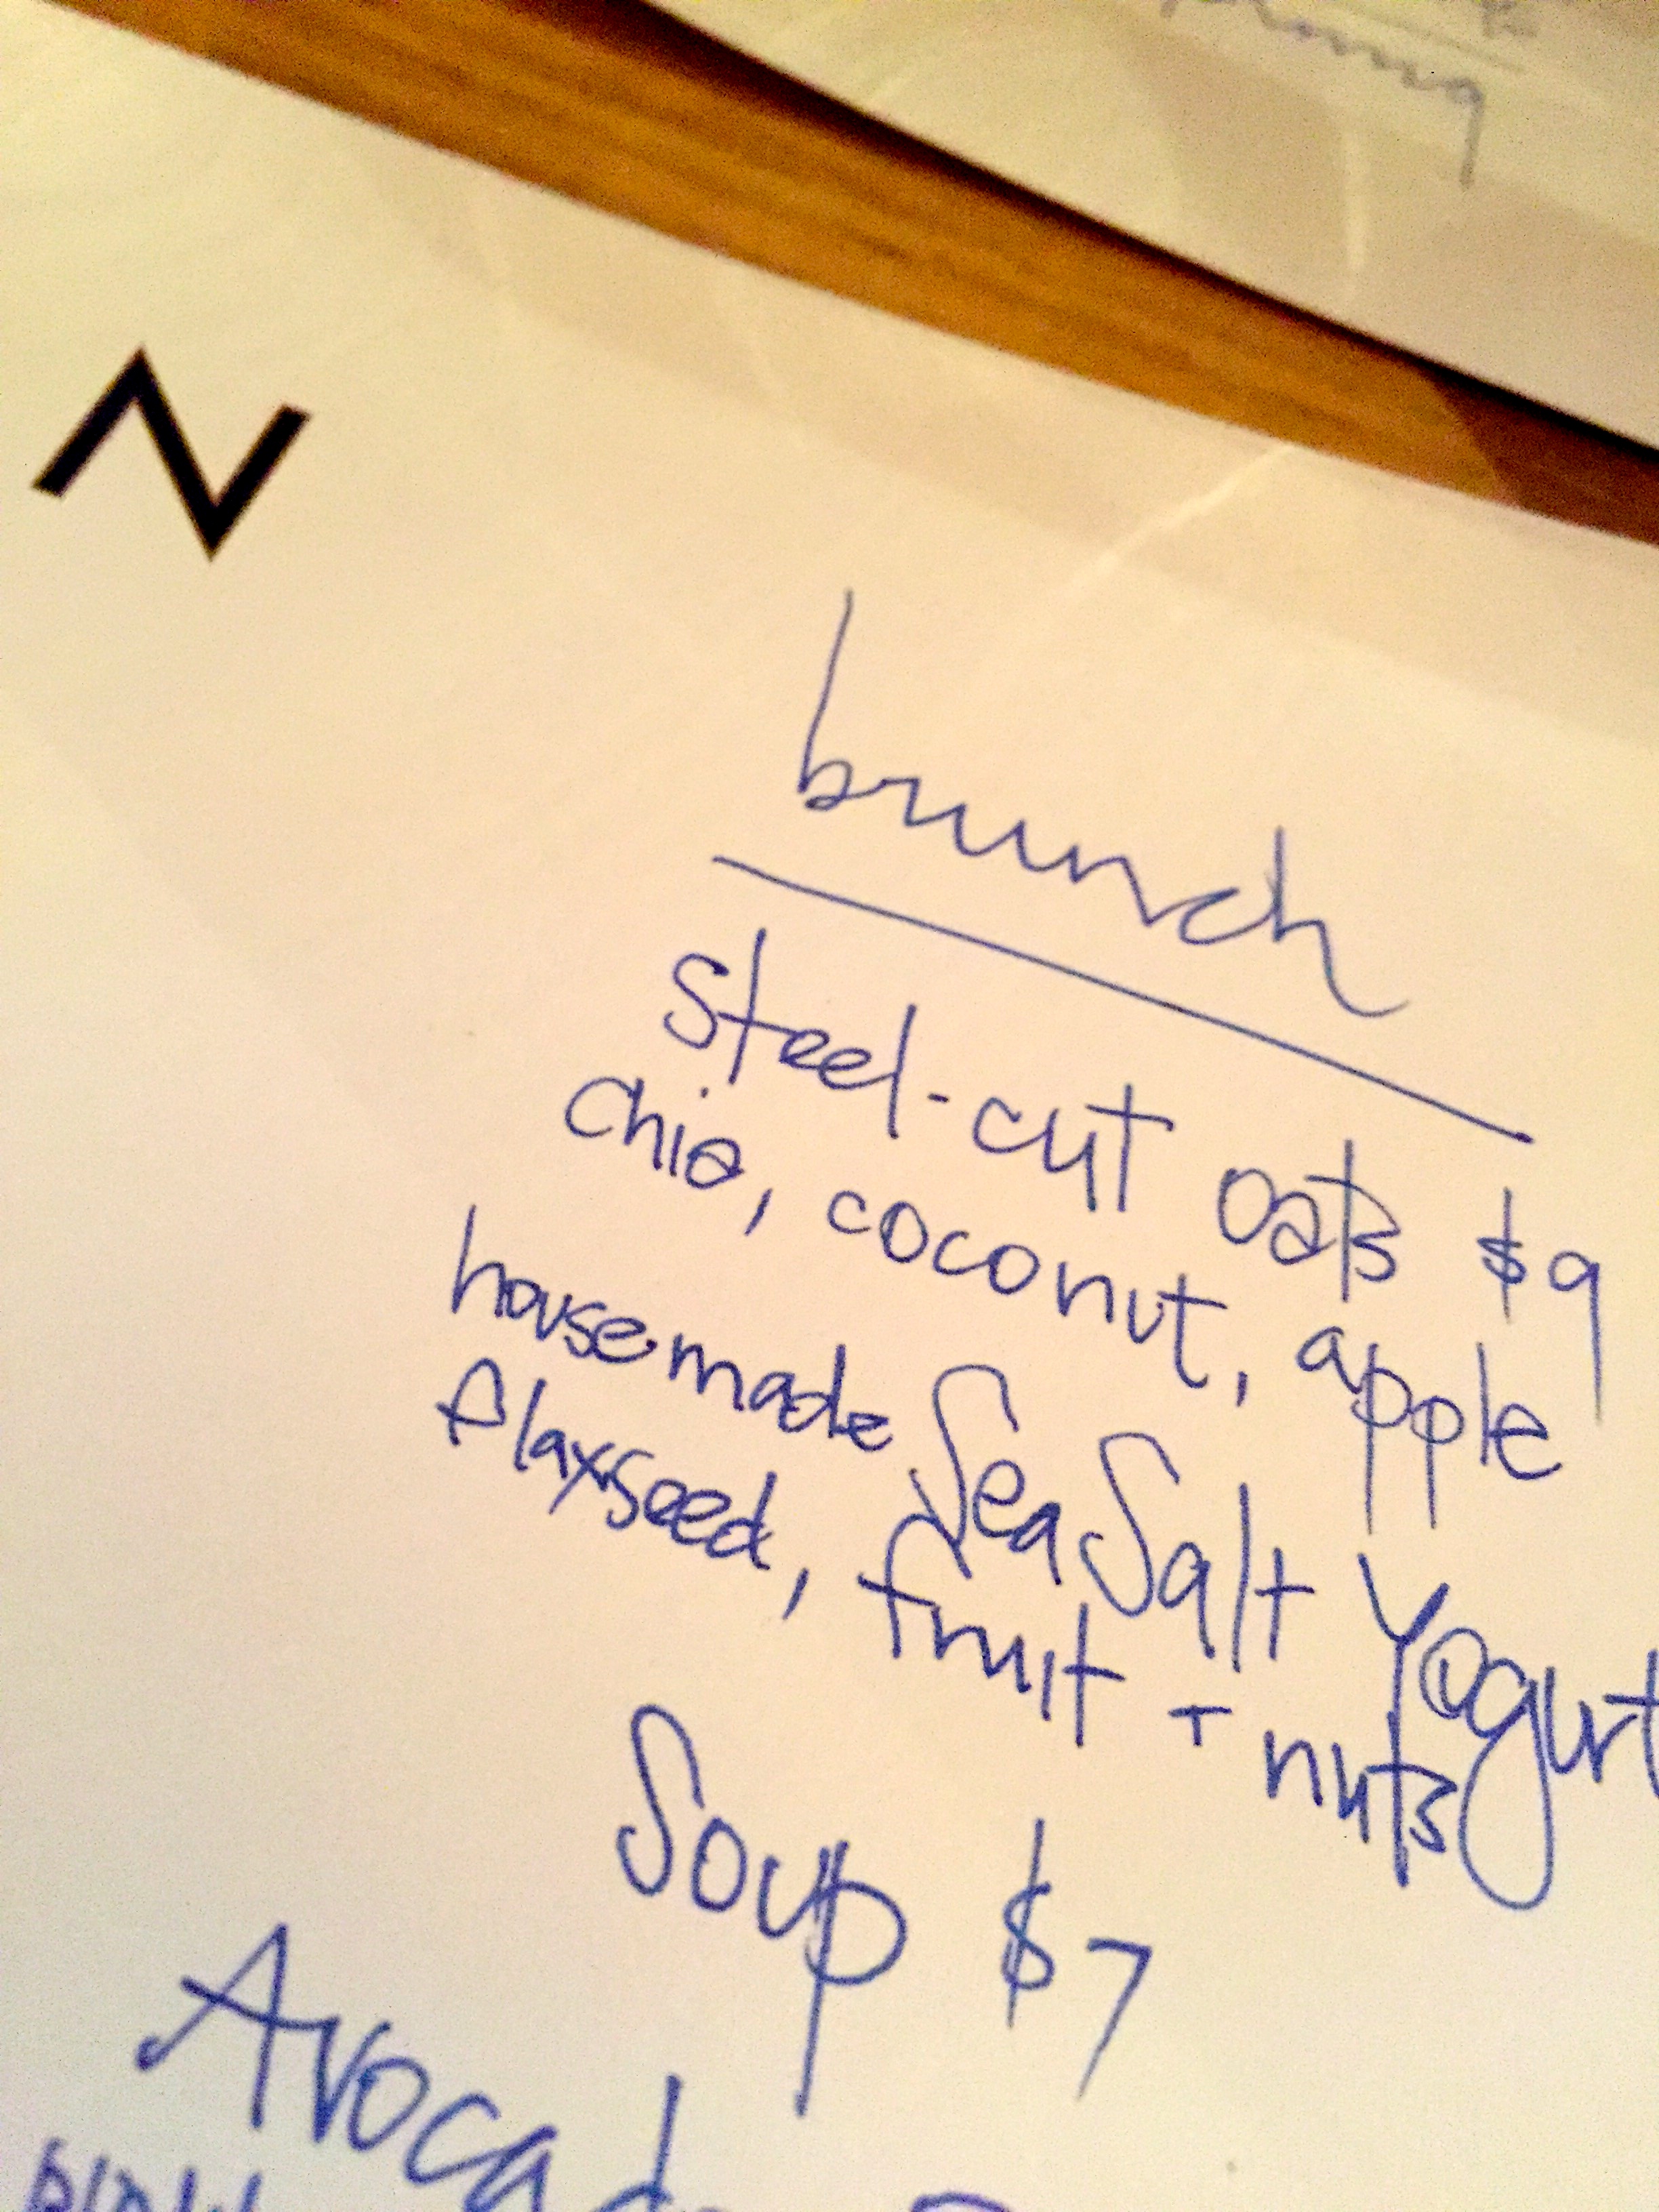 N
brunch
Steel-cut oats $9
Chia, coconut, apple
housemade Sea Salt Yogurt
flaxseed, fruit + nuts
Soup $7